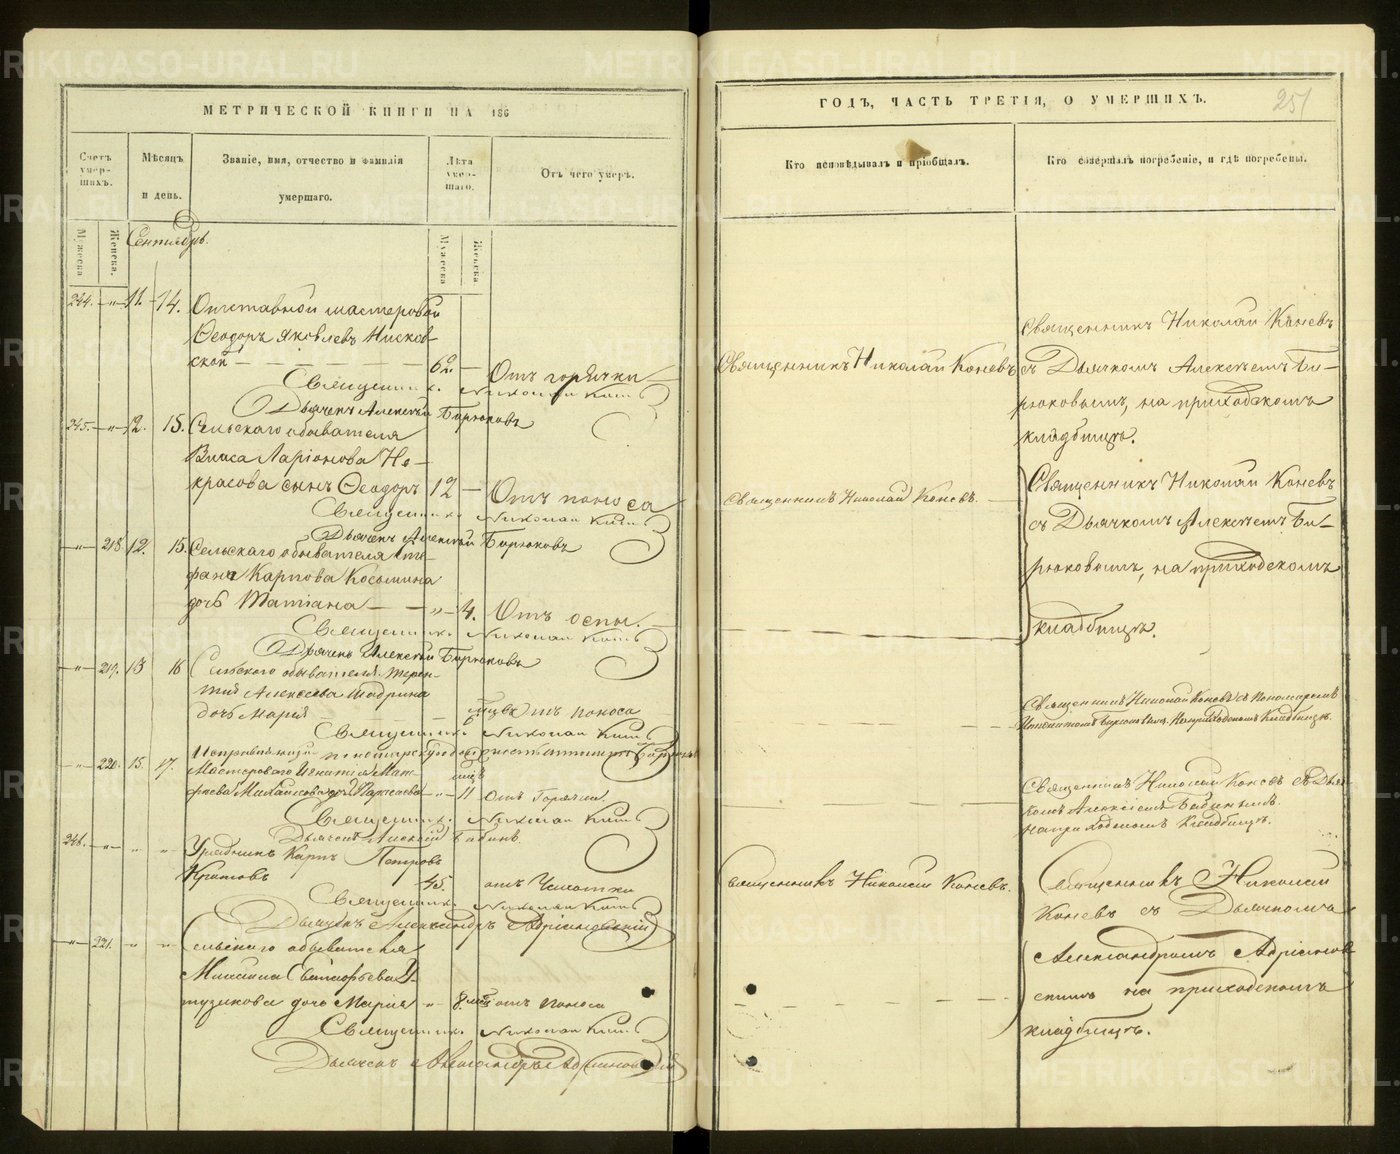 МЕТРИЧЕСКОЙ КНИГИ НА 186
Счетъ умер-шихъ.
Мѣсяцъ и день.
Званіе, имя, отчество и фамилія умершаго.
Лѣта умер-шаго.
Отъ чего умеръ.
Мужеска
Женска.
Сентябрь.
Мужеска
Женска
244. " 11. 14. Отставной мастеровой
Ѳеодоръ Яковлевъ
ской 60 Отъ горячки
Священникъ Николай Коневъ
Дьячекъ Алексѣй Бирюковъ
245. " 12. 15. Сельскаго обывателя
Власа Ларіонова Не-
красова сынъ Ѳеодоръ 12 Отъ поноса
Священникъ Николай Коневъ
Дьячекъ Алексѣй Бирюковъ
" 218. 12. 15. Сельскаго обывателя Сте-
фана Карпова Косьмина
дочь Татіана " 4. Отъ оспы.
Священникъ Николай Коневъ
Дьячекъ Алексѣй Бирюковъ
" 219. 13 16 Сельскаго обывателя Терен-
тія Алексѣева Шадрина
дочь Марія Отъ поноса
Священникъ Николай Коневъ
" 220. 15. 17. Мастероваго Игнатія Мат-
фѣева Михайлова дочь " 11 отъ Горячки
Священникъ Николай Коневъ
Дьячекъ Алексій Бабинъ
246. " " " Урядникъ Карпъ Петровъ
45. отъ Чахотки
Священникъ Николай Коневъ
Дьячекъ Александръ Адріановскій
" 221. " " Сельскаго обывателя
дочь Марія " 8 отъ поноса
Священникъ Николай Коневъ
Дьячекъ Александръ Адріановскій
ГОДЪ, ЧАСТЬ ТРЕТІЯ, О УМЕРШИХЪ.
251
Кто исповѣдывалъ и пріобщалъ.
Кто совершалъ погребеніе, и гдѣ погребены.
Священникъ Николай Коневъ
Священникъ Николай Коневъ
съ Дьячкомъ Алексѣемъ Би-
рюковымъ, на приходскомъ
кладбищѣ.
Священникъ Николай Коневъ.
Священникъ Николай Коневъ
съ Дьячкомъ Алексѣемъ Би-
рюковымъ, на приходскомъ
кладбищѣ.
Священникъ Николай Коневъ съ Пономаремъ
на приходскомъ Кладбищѣ.
Священникъ Николай Коневъ съ Дьяч-
комъ Алексіемъ Бабинымъ
на приходскомъ Кладбищѣ.
Священникъ Николай Коневъ.
Священникъ Николай
Коневъ съ Дьячкомъ
Александромъ Адріанов-
скимъ на приходскомъ
кладбищѣ.
METRIKI.GASO-URAL.RU